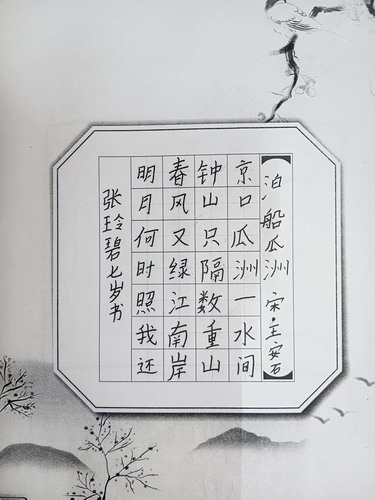 泊船瓜洲 宋·王安石
京口瓜洲一水间
钟山只隔数重山
春风又绿江南岸
明月何时照我还
张玲碧七岁书